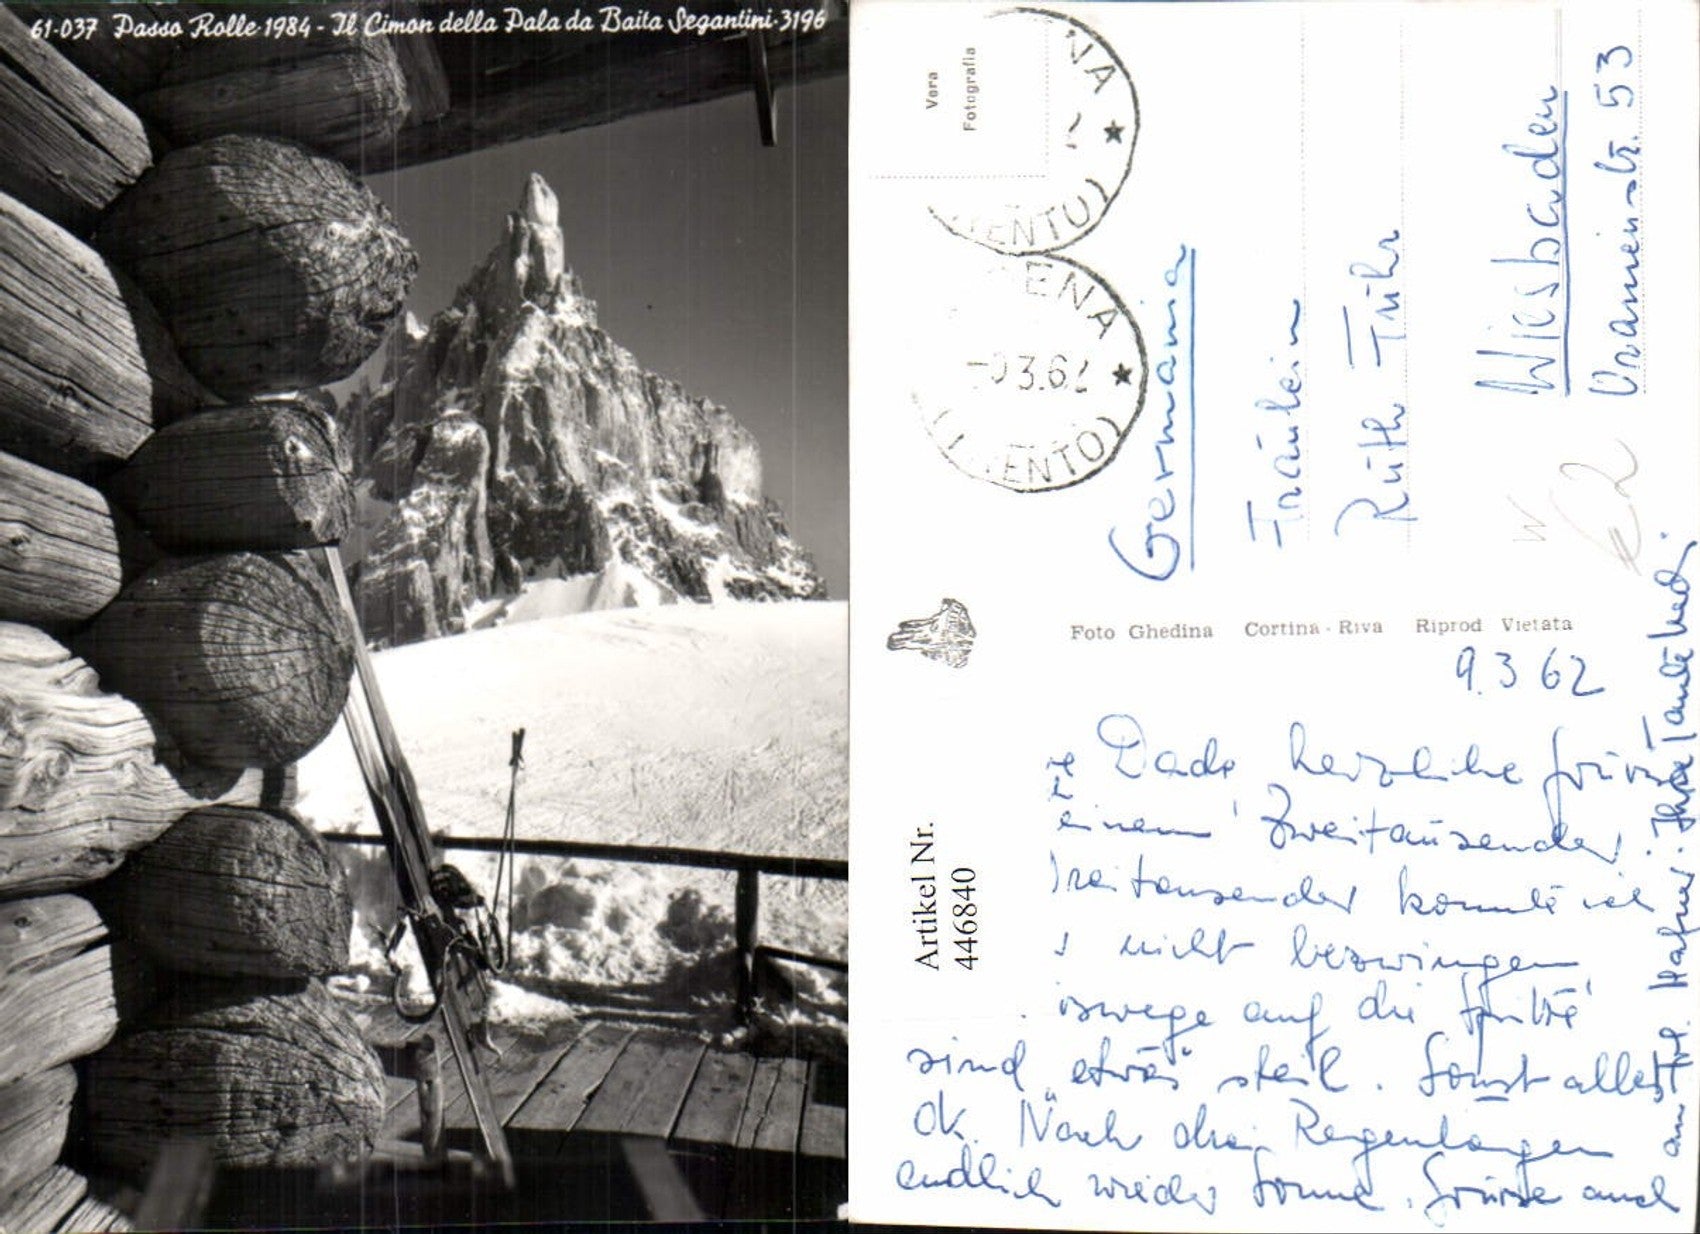 61-037 Passo Rolle 1984 - Il Cimon della Pala da Baita Segantini-3196
Vera
Fotografia
ENA
-9.3.62
(TRENTO)
Germania
Fräulein
Ruth Führ
Wiesbaden
Oranienstr. 53
Foto Ghedina Cortina - Riva Riprod Vietata
Artikel Nr.
446840
9.3 62
herzliche
einem Zweitausender.
konnte ich
nicht bezwingen,
auf die Spitze
sind etwas steil. Sonst alles
OK. Nach drei Regentagen
endlich wieder Sonne. Grüsse auch